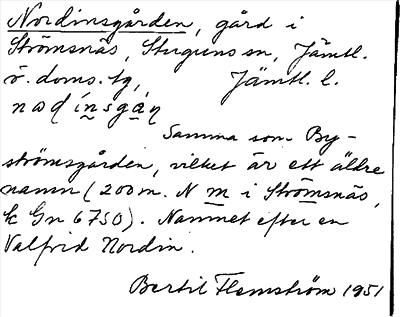 Nordinsgården, gård i
Strömsnäs, Stuguns sn, Jämtl.
ö. doms. tg, Jämtl. l.
nodínsgáṇ
Samma som By-
strömsgården, vilket är ett äldre
namn (200 m. N m i Strömsnäs,
k Gn 6750). Namnet efter en
Valfrid Nordin.
Bertil Flemström 1951